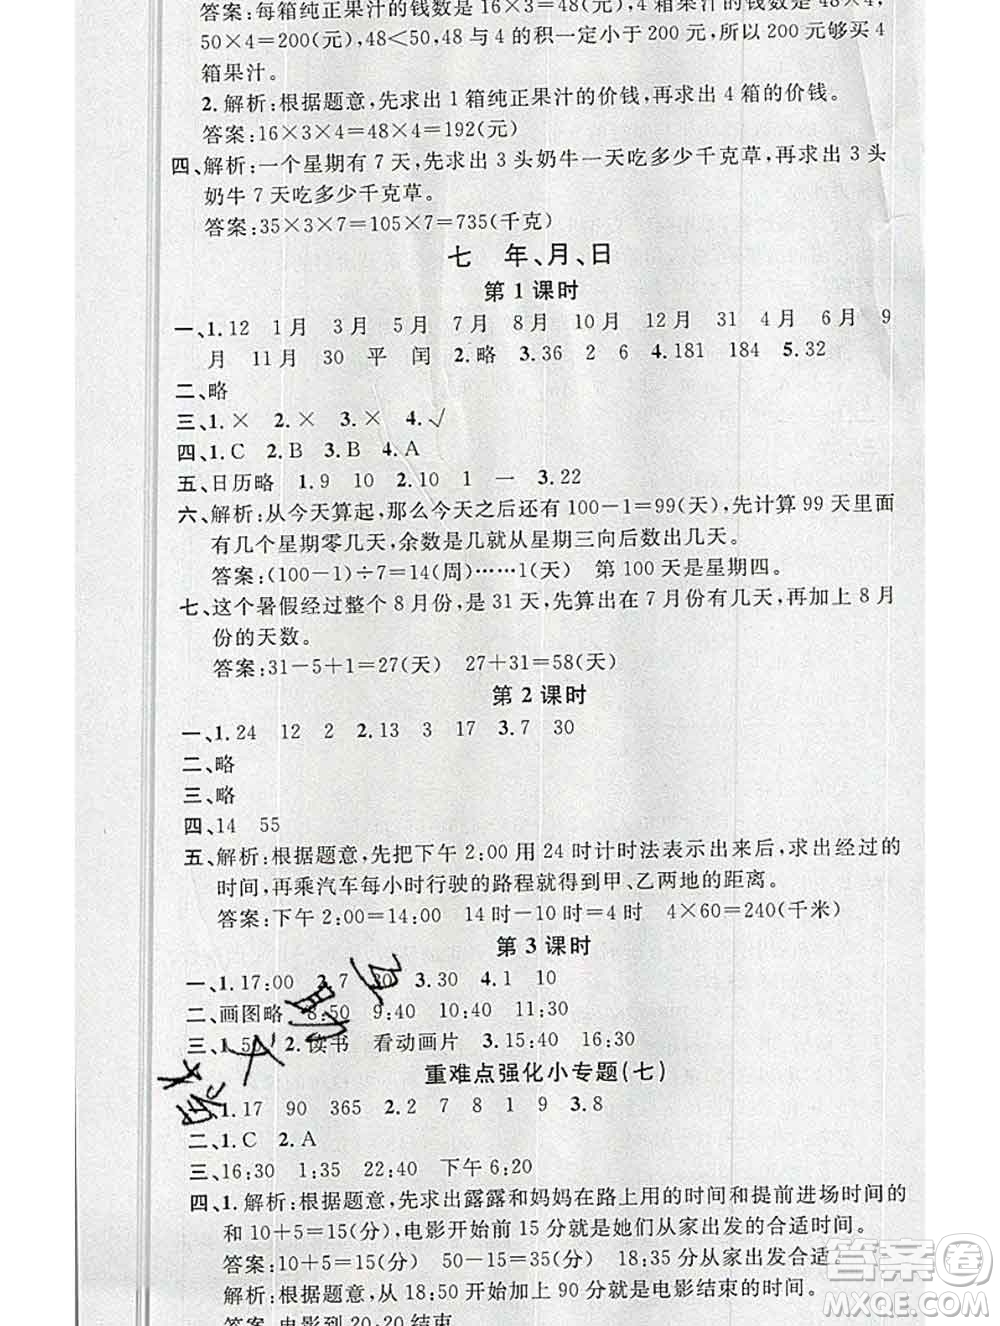 答案:每箱纯正果汁的钱数是 16×3=48(元),4 箱果汁的钱数是 48×4,
50×4=200(元),48<50,48 与 4 的积一定小于 200 元,所以 200 元够买 4
箱果汁。
2. 解析:根据题意,先求出 1 箱纯正果汁的价钱,再求出 4 箱的价钱。
答案:16×3×4=48×4=192(元)
四、解析:一个星期有 7 天,先求出 3 头奶牛一天吃多少千克草,再求出 3 头
奶牛 7 天吃多少千克草。
答案:35×3×7=105×7=735(千克)
七 年、月、日
第 1 课时
一、1.12 1 月 3 月 5 月 7 月 8 月 10 月 12 月 31 4 月 6 月 9
月 11 月 30 平 闰 2.略 3.36 2 6 4.181 184 5.32
二、略
三、1.× 2.× 3.× 4.√
四、1.C 2.B 3.B 4.A
五、日历略 1.9 10 2.10 1 一 3.22
六、解析:从今天算起,那么今天之后还有 100-1=99(天),先计算 99 天里面
有几个星期零几天,余数是几就从星期三向后数出几天。
答案:(100-1)÷7=14(周)……1(天) 第 100 天是星期四。
七、这个暑假经过整个 8 月份,是 31 天,先算出在 7 月份有几天,再加上 8 月
份的天数。
答案:31-5+1=27(天) 27+31=58(天)
第 2 课时
一、1.24 12 2 2.13 3 17 3.7 30
二、略
三、略
四、14 55
五、解析:根据题意,先把下午 2:00 用 24 时计时法表示出来后,求出经过的
时间,再乘汽车每小时行驶的路程就得到甲、乙两地的距离。
答案:下午 2:00=14:00 14时-10 时=4 时 4×60=240(千米)
第 3 课时
一、1.17:00 2.7 30 3.30 4.1 10
二、画图略 8:50 9:40 10:40 11:30
三、1.50 2.读书 看动画片 3.15:40 16:30
重难点强化小专题(七)
1.17 90 365 2.2 7 8 1 9 3.8
二、1.C 2.A
三、16:30 1:35 22:40 下午 6:20
四、1.解析:根据题意,先求出露露和妈妈在路上用的时间和提前进场时间的
和 10+5=15(分),电影开始前 15 分就是她们从家出发的合适时间。
答案:10+5=15(分) 50-15=35(分) 18:35 分从家出发合适
解析:从 18:50 开始,加上 90 分就是电影结束的时间。
答案:电影到 20:20 结束
答案圈
MXQE.COM